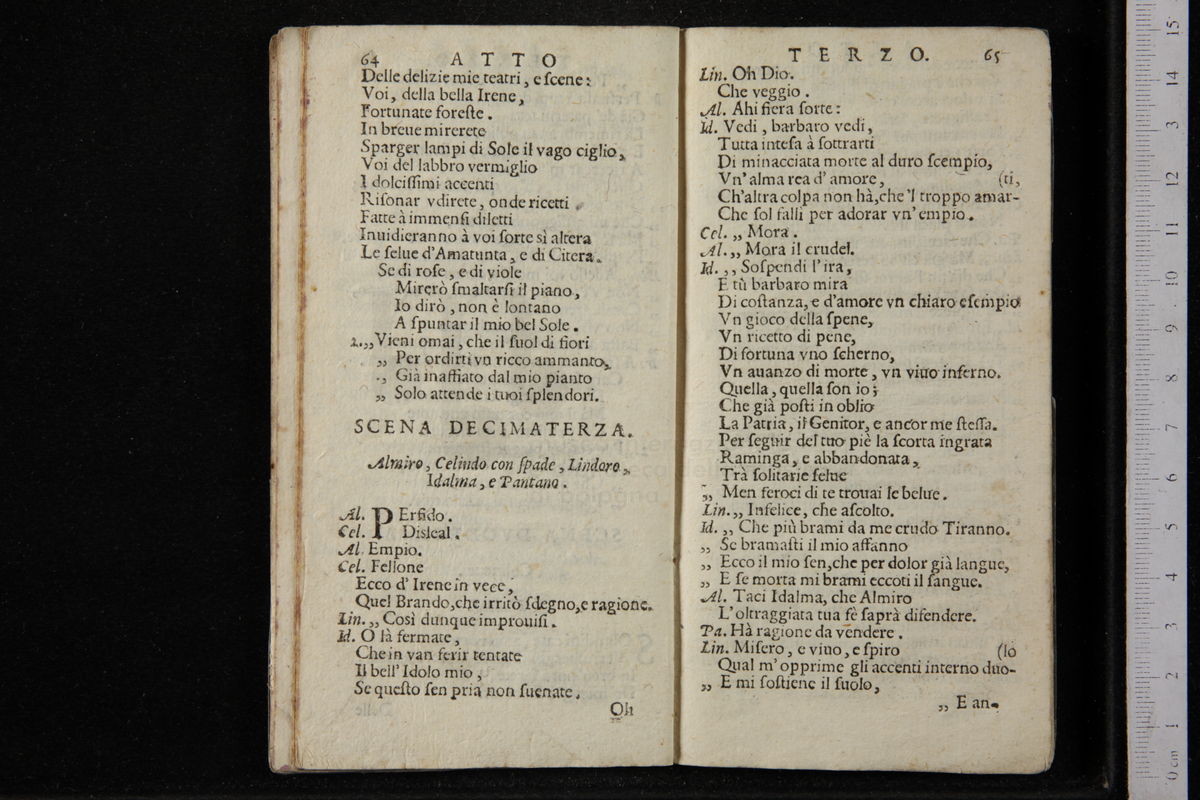 64 ATTO
Delle delizie mie teatri, e ſcene:
Voi, della bella Irene,
Fortunate foreſte.
In breue mirerete
Sparger lampi di Sole il vago ciglio,
Voi del labbro vermiglio
I dolciſſimi accenti
Riſonar vdirete, onde ricetti
Fatte à immenſi diletti
Inuidieranno à voi ſorte sì altera
Le ſelue d'Amatunta, e di Citera.
Se di roſe, e di viole
Mirerò ſmaltarſi il piano,
Io dirò, non è lontano
A ſpuntar il mio bel Sole.
2.,,Vieni omai, che il ſuol di fiori
,, Per ordirti vn ricco ammanto,
., Già inaffiato dal mio pianto
,, Solo attende i tuoi ſplendori.
SCENA DECIMATERZA.
Almiro, Celindo con ſpade, Lindoro,
Idalma, e Pantano.
Al. PErfido.
Cel. Disleal.
Al. Empio.
Cel. Fellone
Ecco d' Irene in vece,
Quel Brando,che irritò ſdegno,e ragione.
Lin. ,, Così dunque improuiſi.
Id. O là fermate,
Che in van ferir tentate
Il bell' Idolo mio,
Se queſto ſen pria non ſuenate.
Oh
TERZO. 65
Lin. Oh Dio.
Che veggio.
Al. Ahi fiera ſorte:
Id. Vedi, barbaro vedi,
Tutta inteſa à ſottrarti
Di minacciata morte al duro ſcempio,
Vn' alma rea d' amore, (ti,
Ch'altra colpa non hà,che 'l troppo amar-
Che ſol falli per adorar vn' empio.
Cel. ,, Mora.
Al. ,, Mora il crudel.
Id. ,, Soſpendi l' ira,
E tù barbaro mira
Di coſtanza, e d'amore vn chiaro eſempio
Vn gioco della ſpene,
Vn ricetto di pene,
Di fortuna vno ſcherno,
Vn auanzo di morte, vn viuo inferno.
Quella, quella ſon io;
Che già poſti in oblio
La Patria, il Genitor, e ancor me ſteſſa.
Per ſeguir del tuo piè la ſcorta ingrata
Raminga, e abbandonata,
Trà ſolitarie ſelue
,, Men feroci di te trouai le belue.
Lin. ,, Infelice, che aſcolto.
Id. ,, Che più brami da me crudo Tiranno.
,, Se bramaſti il mio affanno
,, Ecco il mio ſen,che per dolor già langue,
,, E ſe morta mi brami eccoti il ſangue.
Al. Taci Idalma, che Almiro
L'oltraggiata tua fè ſaprà difendere.
Pa. Hà ragione da vendere.
Lin. Miſero, e viuo, e ſpiro (lo
Qual m' opprime gli accenti interno duo-
,, E mi ſoſtiene il ſuolo,
,, E an-